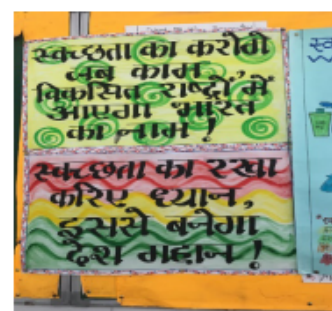 स्वच्छता का करोगे
जब काम,
विकसित राष्ट्रों में
आएगा भारत
का नाम !
स्वच्छता का रखा
करिए ध्यान,
इससे बनेगा
देश महान !
स्व